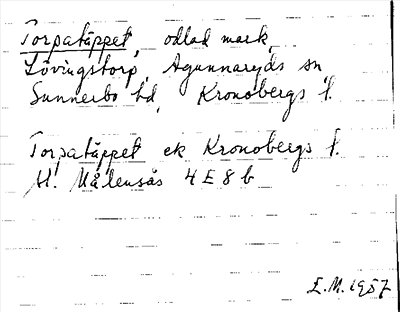 Torpatäppet, odlad mark,
Lövingstorp, Agunnaryds sn,
Sunnerbo hd, Kronobergs l.
Torpatäppet ek Kronobergs l.
M. Målensås 4E8b
E.M. 1957